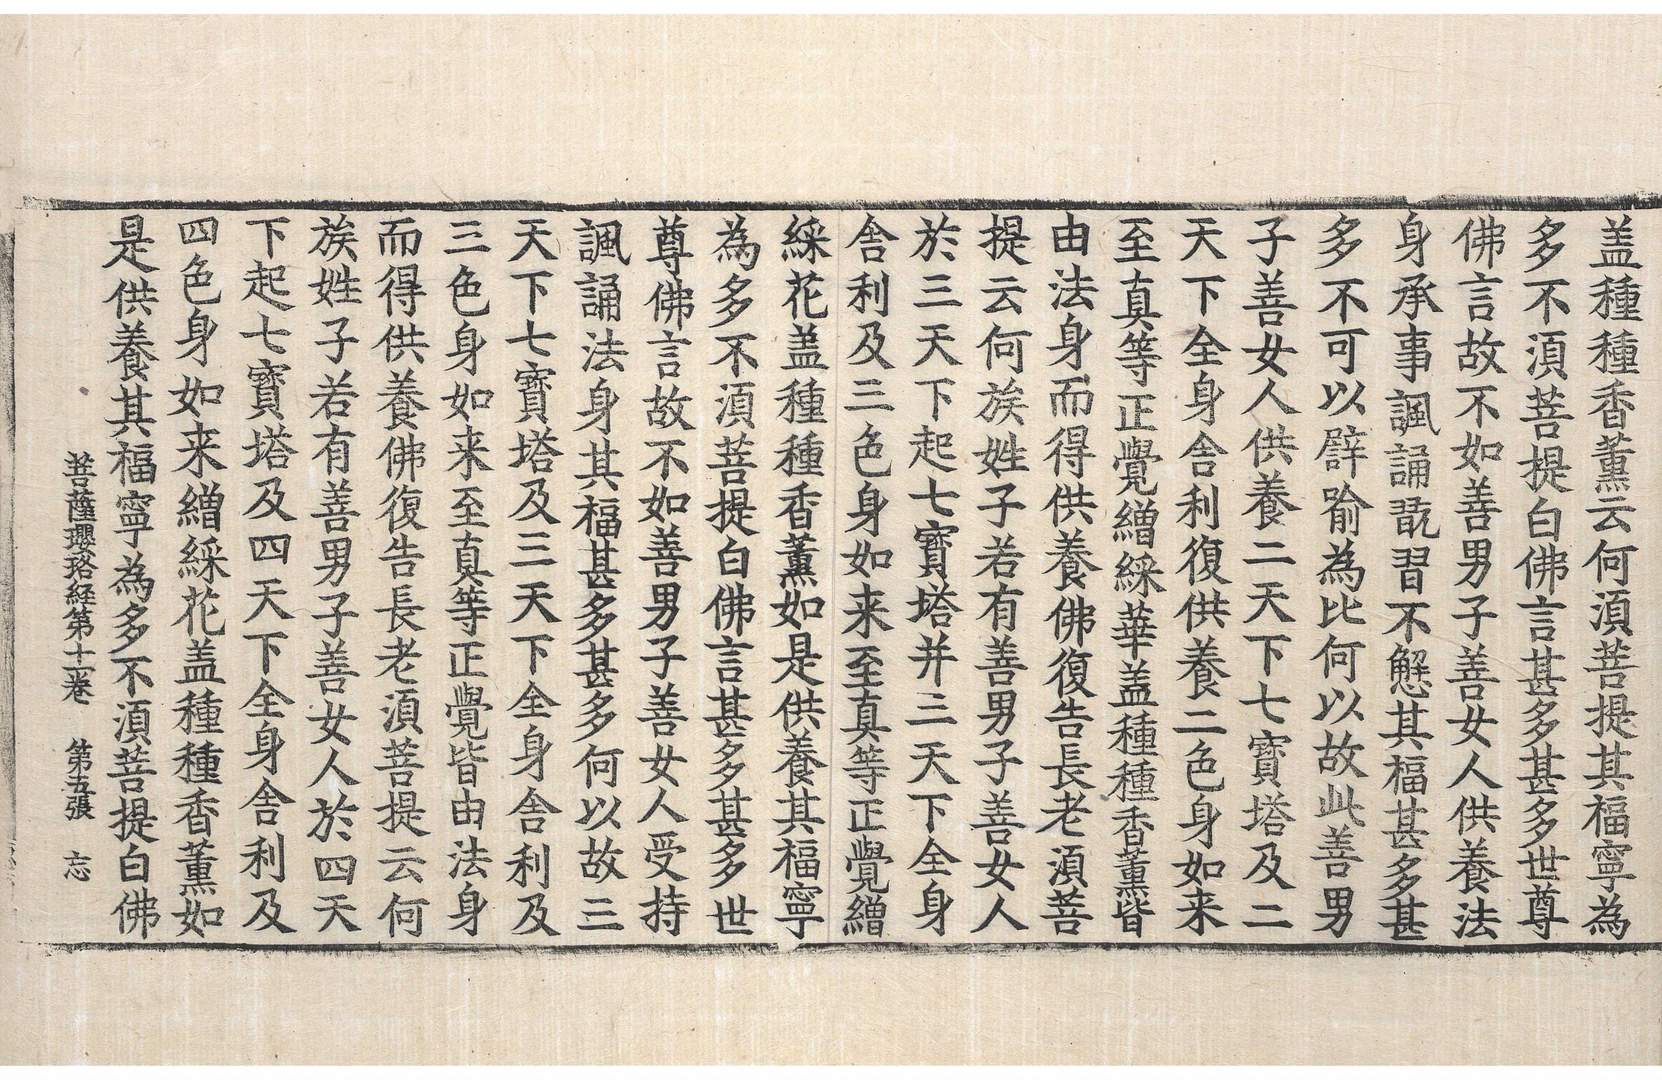 盖種種香薰云何湏菩提其福寧為
多不湏菩提白佛言甚多甚多世尊
佛言故不如善男子善女人供養法
身承事諷誦翫習不懈其福甚多甚
多不可以譬喻為比何以故此善男
子善女人供養二天下七寶塔及二
天下全身舍利復供養二色身如来
至真等正覺繒綵華盖種種香薰皆
由法身而得供養佛復告長老湏菩
提云何族姓子若有善男子善女人
於三天下起七寶塔并三天下全身
舍利及三色身如来至真等正覺繒
綵花盖種種香薰如是供養其福寧
為多不湏菩提白佛言甚多甚多世
尊佛言故不如善男子善女人受持
諷誦法身其福甚多甚多何以故三
天下七寶塔及三天下全身舍利及
三色身如来至真等正覺皆由法身
而得供養佛復告長老湏菩提云何
族姓子若有善男子善女人於四天
下起七寶塔及四天下全身舍利及
四色身如来繒綵花盖種種香薰如
是供養其福寧為多不湏菩提白佛
菩薩瓔珞経第十一卷　第五張　忘